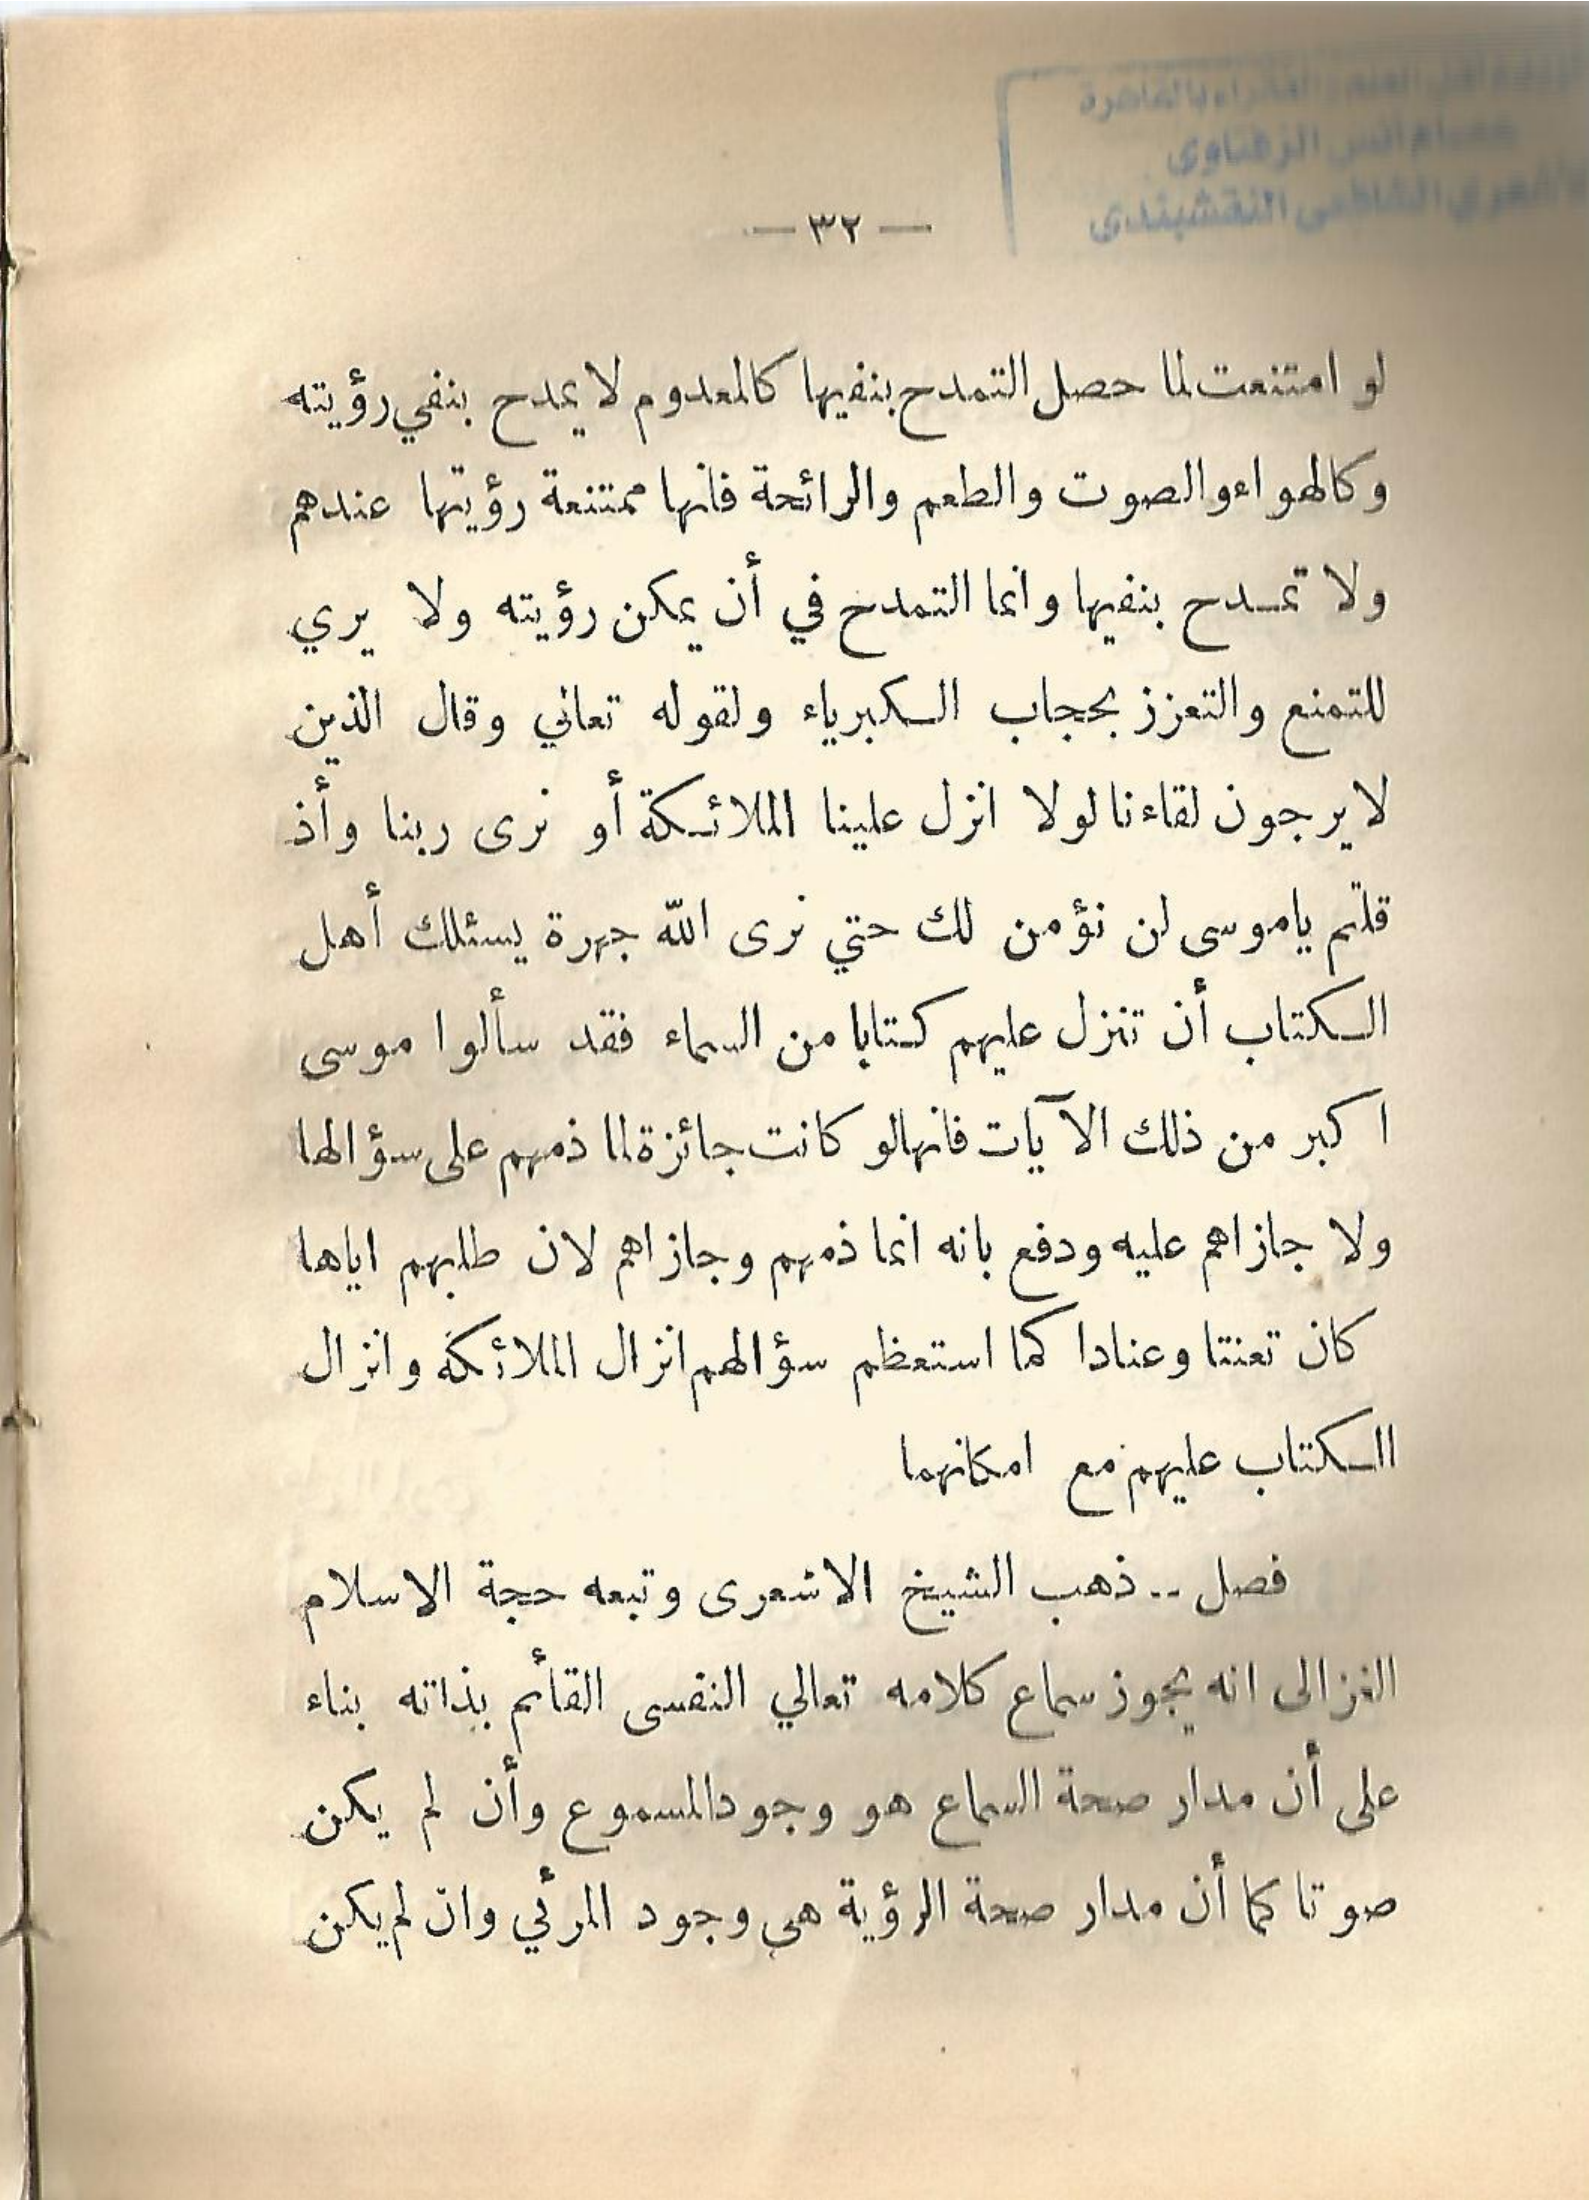 بالقاهرة
الزفتاوى
النقشبندى
— ٣٢ —
لو امتنعت لما حصل التمدح بنفيها كالمعدوم لا يمدح بنفي رؤيته
وكالهواء والصوت والطعم والرائحة فانها ممتنعة رؤيتها عندهم
ولا تمدح بنفيها وانما التمدح في أن يمكن رؤيته ولا يري
للتمنع والتعزز بحجاب الكبرياء ولقوله تعالي وقال الذين
لا يرجون لقاءنا لولا انزل علينا الملائكة أو نرى ربنا وأذ
قلتم ياموسى لن نؤمن لك حتي نرى الله جهرة يسئلك أهل
الكتاب أن تنزل عليهم كتابا من السماء فقد سألوا موسى
اكبر من ذلك الآيات فانها لو كانت جائزة لما ذمهم على سؤالها
ولا جازاهم عليه ودفع بانه انما ذمهم وجازاهم لان طلبهم اياها
كان تعنتا وعنادا كما استعظم سؤالهم انزال الملائكة وانزال
الكتاب عليهم مع امكانهما
فصل -- ذهب الشيخ الاشعرى وتبعه حجة الاسلام
الغزالى انه يجوز سماع كلامه تعالي النفسى القأئم بذاته بناء
على أن مدار صحة السماع هو وجود المسموع وأن لم يكن
صوتا كما أن مدار صحة الرؤية هى وجود المرئي وان لم يكن